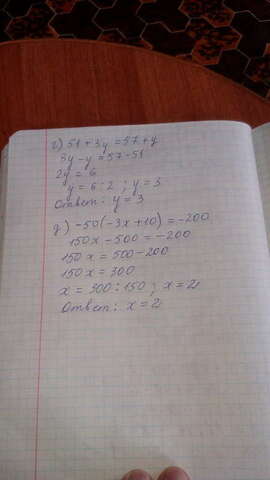 г) 51 + 3y = 57 + y
3y - y = 57 - 51
2y = 6
y = 6 : 2 ; y = 3
Ответ: y = 3
д) -50(-3x + 10) = -200
150x - 500 = -200
150x = 500 - 200
150x = 300
x = 300 : 150 ; x = 2
Ответ: x = 2